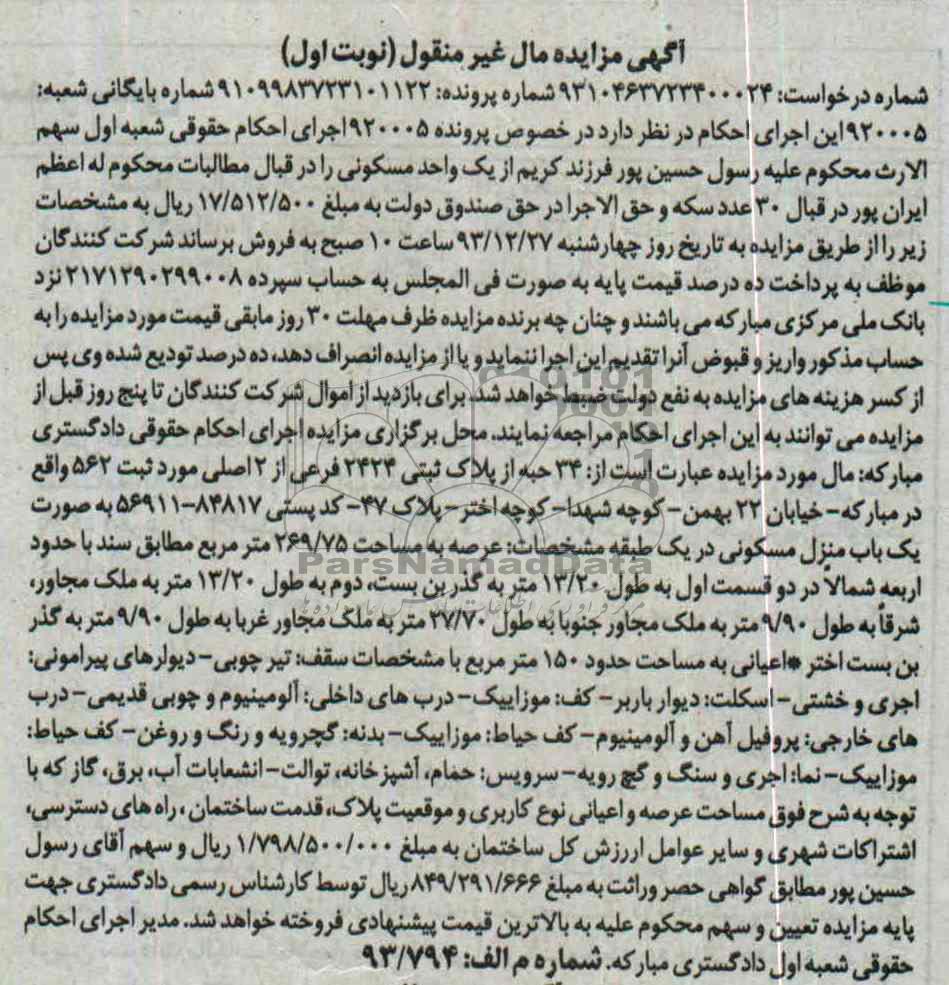 آگهی مزایده مال غیر منقول (نوبت اول)
شماره درخواست: ۹۳۱۰۴۶۳۷۲۳۴۰۰۰۲۴ شماره پرونده: ۹۱۰۹۹۸۳۷۲۳۱۰۱۱۲۲ شماره بایگانی شعبه:
۹۲۰۰۰۵ این اجرای احکام در نظر دارد در خصوص پرونده ۹۲۰۰۰۵ اجرای احکام حقوقی شعبه اول سهم
الارث محکوم علیه رسول حسین پور فرزند کریم از یک واحد مسکونی را در قبال مطالبات محکوم له اعظم
ایران پور در قبال ۳۰ عدد سکه و حق الاجرا در حق صندوق دولت به مبلغ ۱۷/۵۱۲/۵۰۰ ریال به مشخصات
زیر را از طریق مزایده به تاریخ روز چهارشنبه ۹۳/۱۲/۲۷ ساعت ۱۰ صبح به فروش برساند شرکت کنندگان
موظف به پرداخت ده درصد قیمت پایه به صورت فی المجلس به حساب سپرده ۲۱۷۱۲۹۰۲۹۹۰۰۸ نزد
بانک ملی مرکزی مبارکه می باشند و چنان چه برنده مزایده ظرف مهلت ۳۰ روز مابقی قیمت مورد مزایده را به
حساب مذکور واریز و قبوض آنرا تقدیم این اجرا ننماید و یا از مزایده انصراف دهد، ده درصد تودیع شده وی پس
از کسر هزینه های مزایده به نفع دولت ضبط خواهد شد. برای بازدید از اموال شرکت کنندگان تا پنج روز قبل از
مزایده می توانند به این اجرای احکام مراجعه نمایند. محل برگزاری مزایده اجرای احکام حقوقی دادگستری
مبارکه: مال مورد مزایده عبارت است از: ۳۴ حبه از پلاک ثبتی ۲۴۲۴ فرعی از ۲ اصلی مورد ثبت ۵۶۲ واقع
در مبارکه- خیابان ۲۲ بهمن- کوچه شهدا- کوچه اختر- پلاک ۴۷- کد پستی ۸۴۸۱۷-۵۶۹۱۱ به صورت
یک باب منزل مسکونی در یک طبقه مشخصات: عرصه به مساحت ۲۶۹/۷۵ متر مربع مطابق سند با حدود
اربعه شمالاً در دو قسمت اول به طول ۱۳/۲۰ متر به گذر بن بست، دوم به طول ۱۳/۲۰ متر به ملک مجاور،
شرقاً به طول ۹/۹۰ متر به ملک مجاور جنوبا به طول ۲۷/۷۰ متر به ملک مجاور غربا به طول ۹/۹۰ متر به گذر
بن بست اختر *اعیانی به مساحت حدود ۱۵۰ متر مربع با مشخصات سقف: تیر چوبی- دیوارهای پیرامونی:
اجری و خشتی- اسکلت: دیوار باربر- کف: موزاییک- درب های داخلی: آلومینیوم و چوبی قدیمی- درب
های خارجی: پروفیل آهن و آلومینیوم- کف حیاط: موزاییک- بدنه: گچرویه و رنگ و روغن- کف حیاط:
موزاییک- نما: اجری و سنگ و گچ رویه- سرویس: حمام، آشپزخانه، توالت- انشعابات آب، برق، گاز که با
توجه به شرح فوق مساحت عرصه و اعیانی نوع کاربری و موقعیت پلاک، قدمت ساختمان ، راه های دسترسی،
اشتراکات شهری و سایر عوامل اررزش کل ساختمان به مبلغ ۱/۷۹۸/۵۰۰/۰۰۰ ریال و سهم آقای رسول
حسین پور مطابق گواهی حصر وراثت به مبلغ ۸۴۹/۲۹۱/۶۶۶ ریال توسط کارشناس رسمی دادگستری جهت
پایه مزایده تعیین و سهم محکوم علیه به بالاترین قیمت پیشنهادی فروخته خواهد شد. مدیر اجرای احکام
حقوقی شعبه اول دادگستری مبارکه. شماره م الف: ۹۳/۷۹۴
ParsNamadData